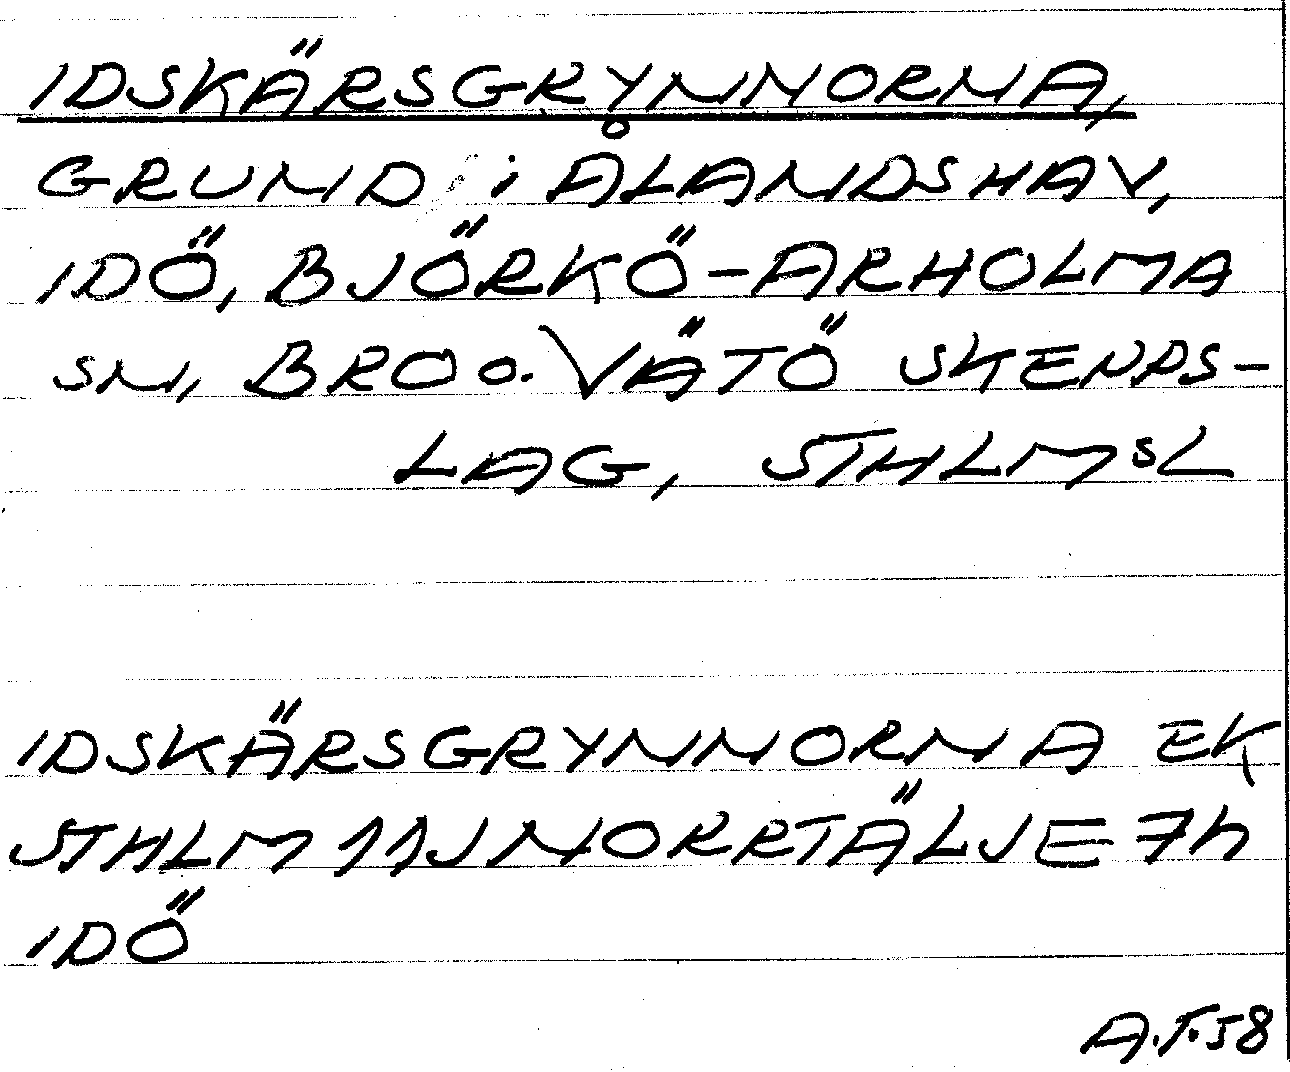 IDSKÄRSGRYNNORNA,
GRUND i ÅLANDSHAV,
IDÖ, BJÖRKÖ-ARHOLMA
SN, BRO o. VÄTÖ SKEPPS-
LAG, STHLMSL
IDSKÄRSGRYNNORNA EK
STHLM 11J NORRTÄLJE 7h
IDÖ
A.F.58